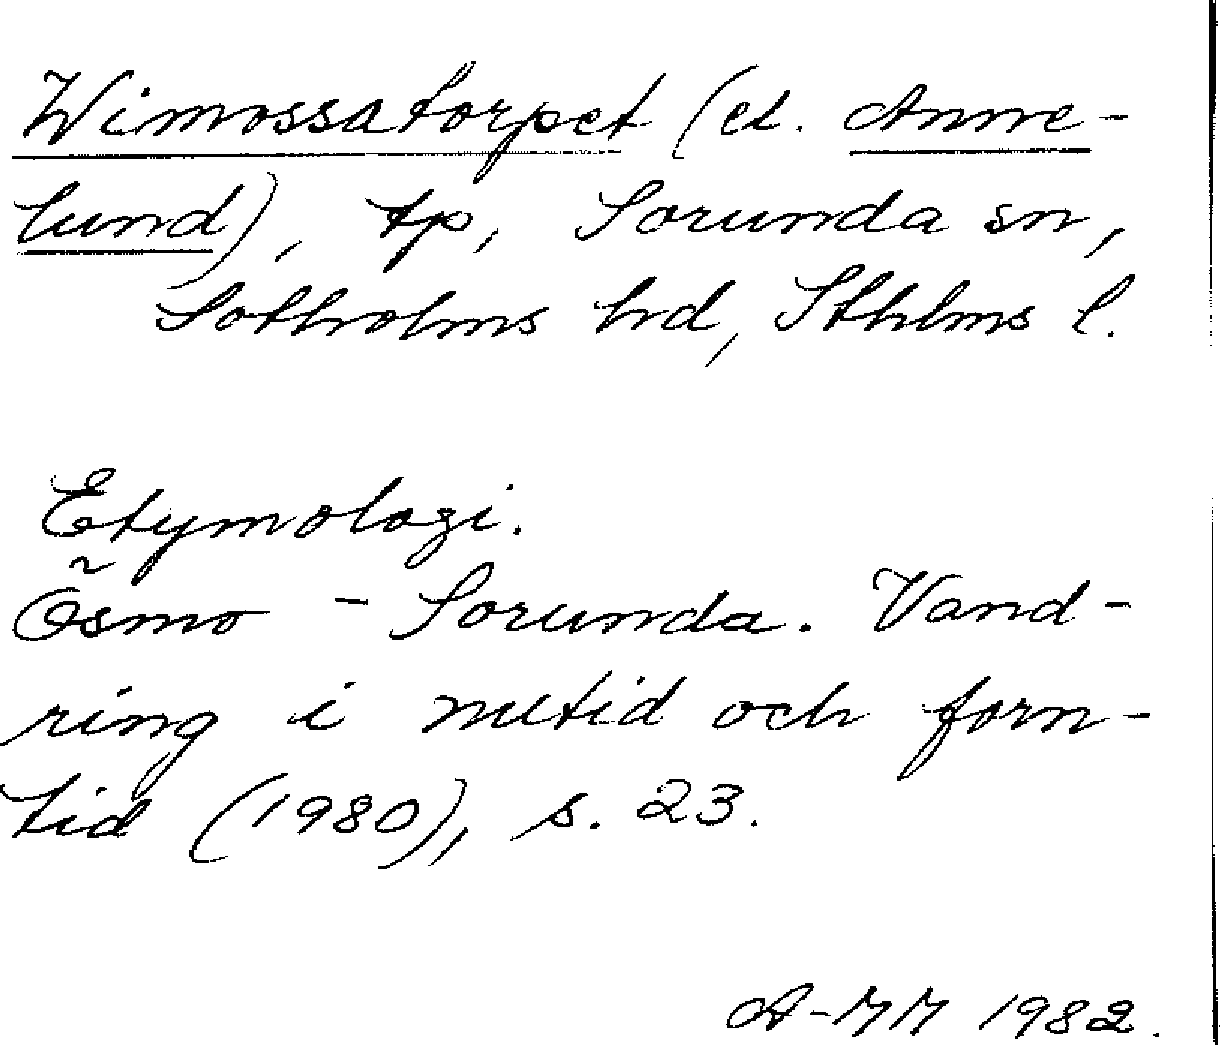 Wimossatorpet (el. Anne-
lund), tp, Sorunda sn,
Sotholms hd, Sthlms l.
Etymologi.
Ösmo - Sorunda. Vand-
ring i nutid och forn-
tid (1980), s. 23.
A-MM 1982.